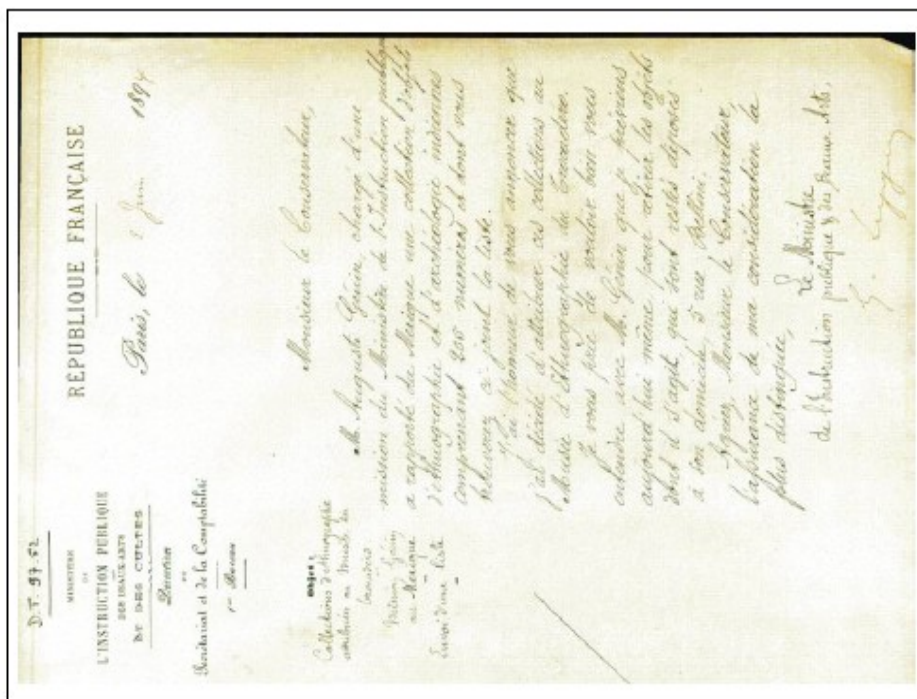 D.T. 97.52
MINISTÈRE
DE
L'INSTRUCTION PUBLIQUE
DES BEAUX-ARTS
ET DES CULTES
Direction
DU
Secrétariat et de la Comptabilité
1er Bureau
OBJET :
Collections d'ethnographie
attribuées au Musée du
Trocadéro
Mission Génin
au Mexique
Envoi d'une liste
RÉPUBLIQUE FRANÇAISE
Paris, le 2 Juin 1894
Monsieur le Conservateur,
M. Auguste Génin, chargé d'une
mission du Ministère de l'Instruction publique
a rapporté du Mexique une collection d'objets
d'ethnographie et d'archéologie indiennes
comprenant 250 numéros et dont vous
trouverez ci-joint la liste.
J'ai l'honneur de vous aviser que
j'ai décidé d'attribuer ces collections au
Musée d'Ethnographie du Trocadéro.
Je vous prie de vouloir bien vous
entendre avec M. Génin que je préviens
aujourd'hui même pour retirer les objets
dont il s'agit qui sont restés déposés
à son domicile, 5 rue Bellini.
Agréez, Monsieur le Conservateur,
l'assurance de ma considération la
plus distinguée,
Le Ministre
de l'Instruction publique & des Beaux-Arts,